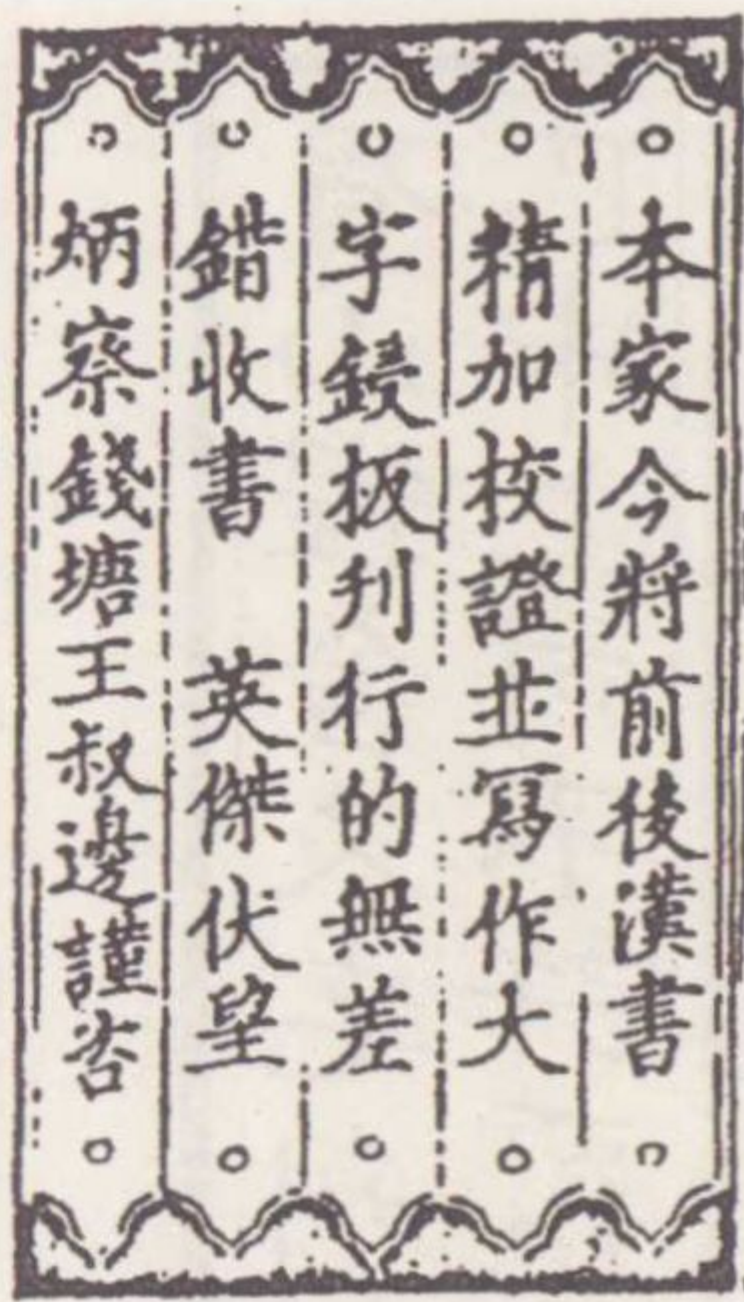 本家今將前後漢書
精加挍證並寫作大
字鋟板刋行的無差
錯收書　英傑伏望
炳察錢塘王叔邊謹咨